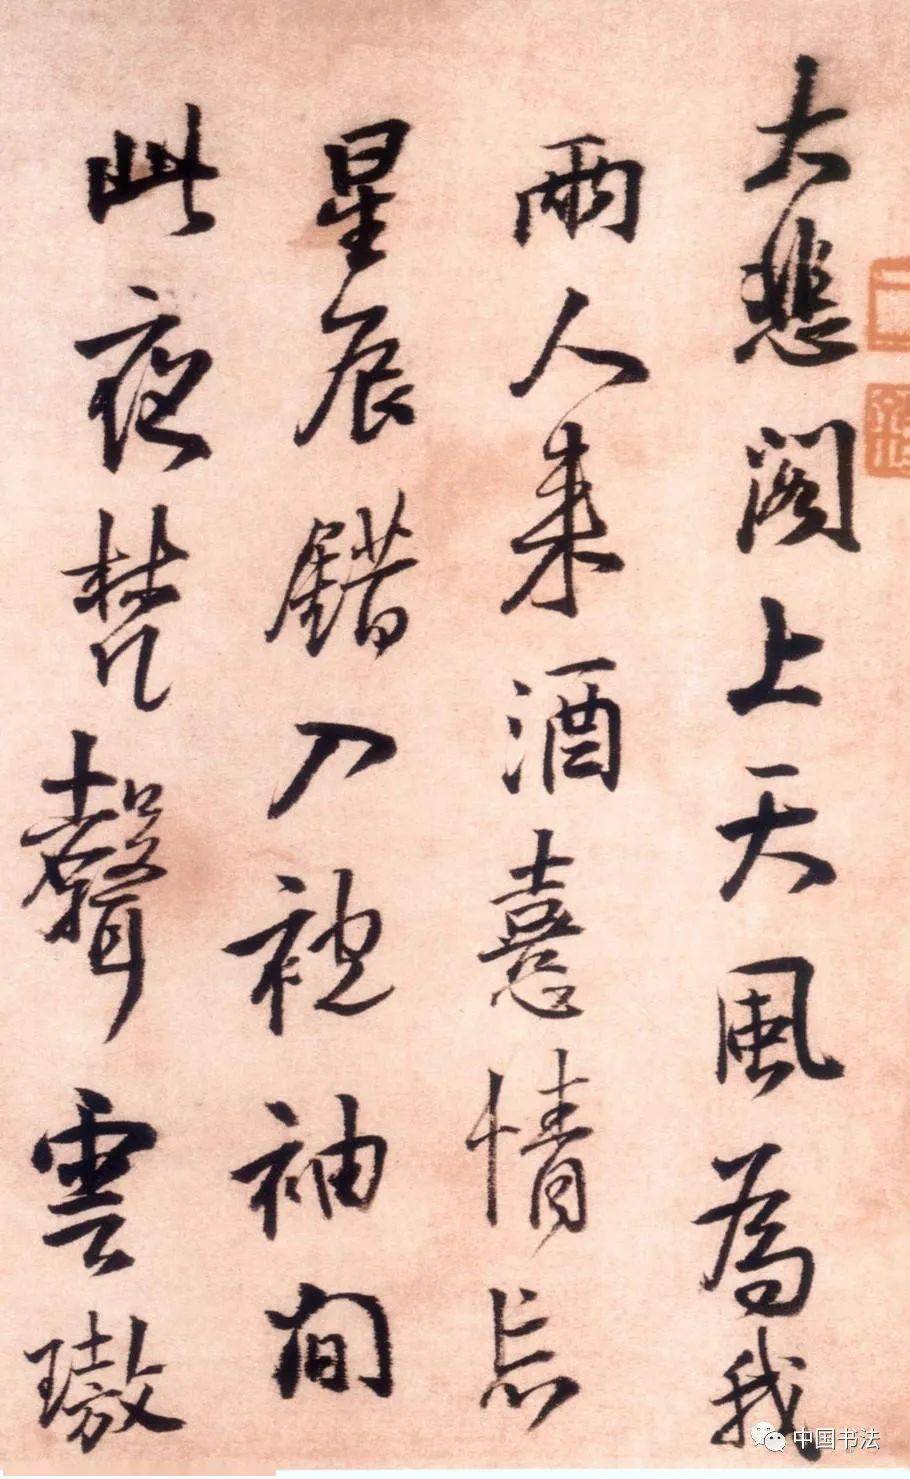 大悲阁上天風為我
兩人来酒意情忘
星辰錯入袍袖间
此夜梵聲雲璈
中国书法